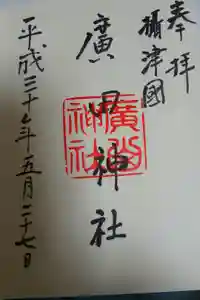 奉拝
攝津國
廣田神社
廣田
神社
平成二十七年五月二十七日